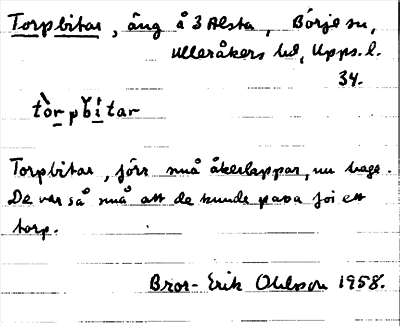 Torpbitar, äng å 3 Alsta, Börje sn,
Ulleråkers hd, Upps. l.
34.
tòrpbìtar
Torpbitar, förr små åkerlappar, nu hage.
De var så små att de kunde passa för ett
torp.
Bror-Erik Ohlsson 1958.